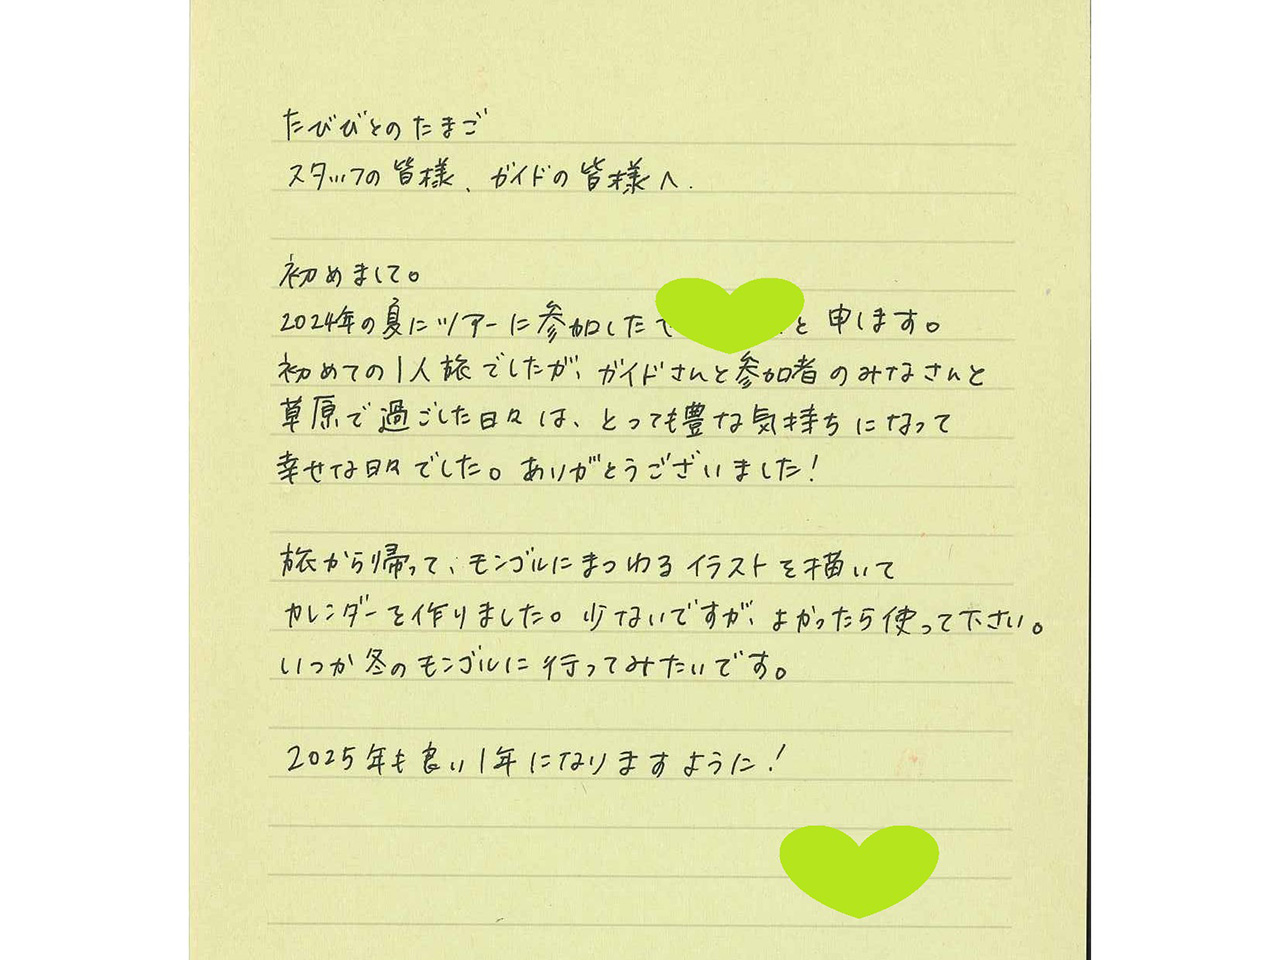 たびびとのたまご
スタッフの皆様、ガイドの皆様へ.
初めまして。
2024年の夏にツアーに参加した と申します。
初めての1人旅でしたが、ガイドさんと参加者のみなさんと
草原で過ごした日々は、とっても豊な気持ちになって
幸せな日々でした。ありがとうございました!
旅から帰って、モンゴルにまつわるイラストを描いて
カレンダーを作りました。少ないですが、よかったら使って下さい。
いつか冬のモンゴルに行ってみたいです。
2025年も良い1年になりますように!